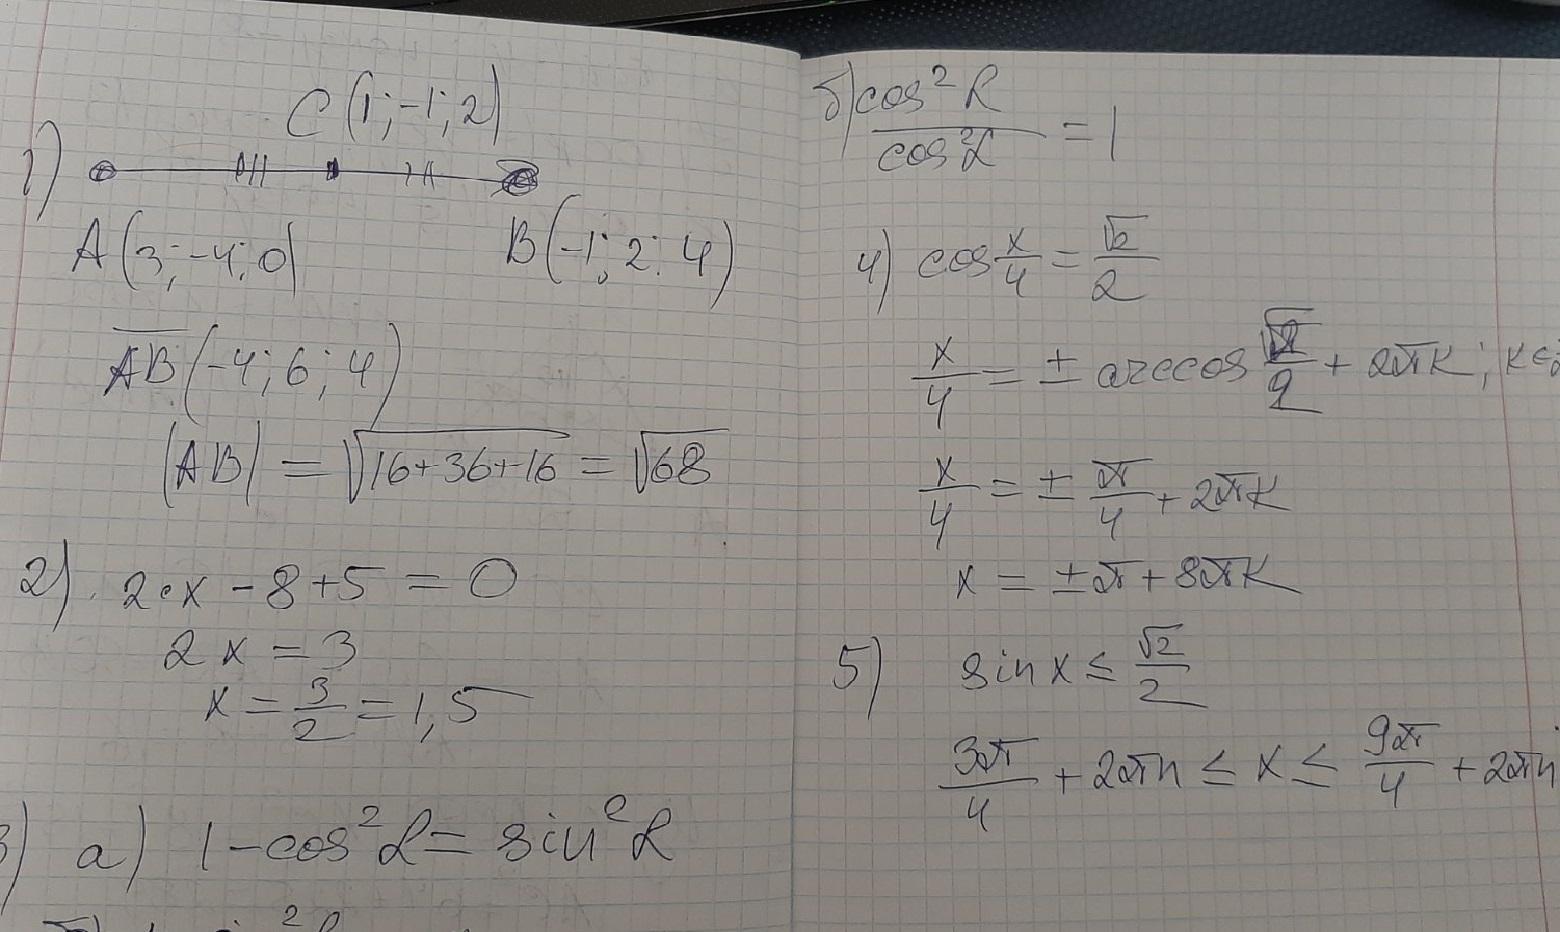 1)
C(1;-1;2)
A(3;-4;0) B(-1;2;4)
AB(-4;6;4)
|AB| = √16+36+16 = √68
2) 2·x - 8 + 5 = 0
2x = 3
x = 3/2 = 1,5
3) a) 1 - cos²α = sin²α
б) cos²α/cos²α = 1
4) cos x/4 = √2/2
x/4 = ± arccos √2/2 + 2πk; k∈
x/4 = ± π/4 + 2πk
x = ±π + 8πk
5) sin x ≤ √2/2
3π/4 + 2πn ≤ x ≤ 9π/4 + 2πn